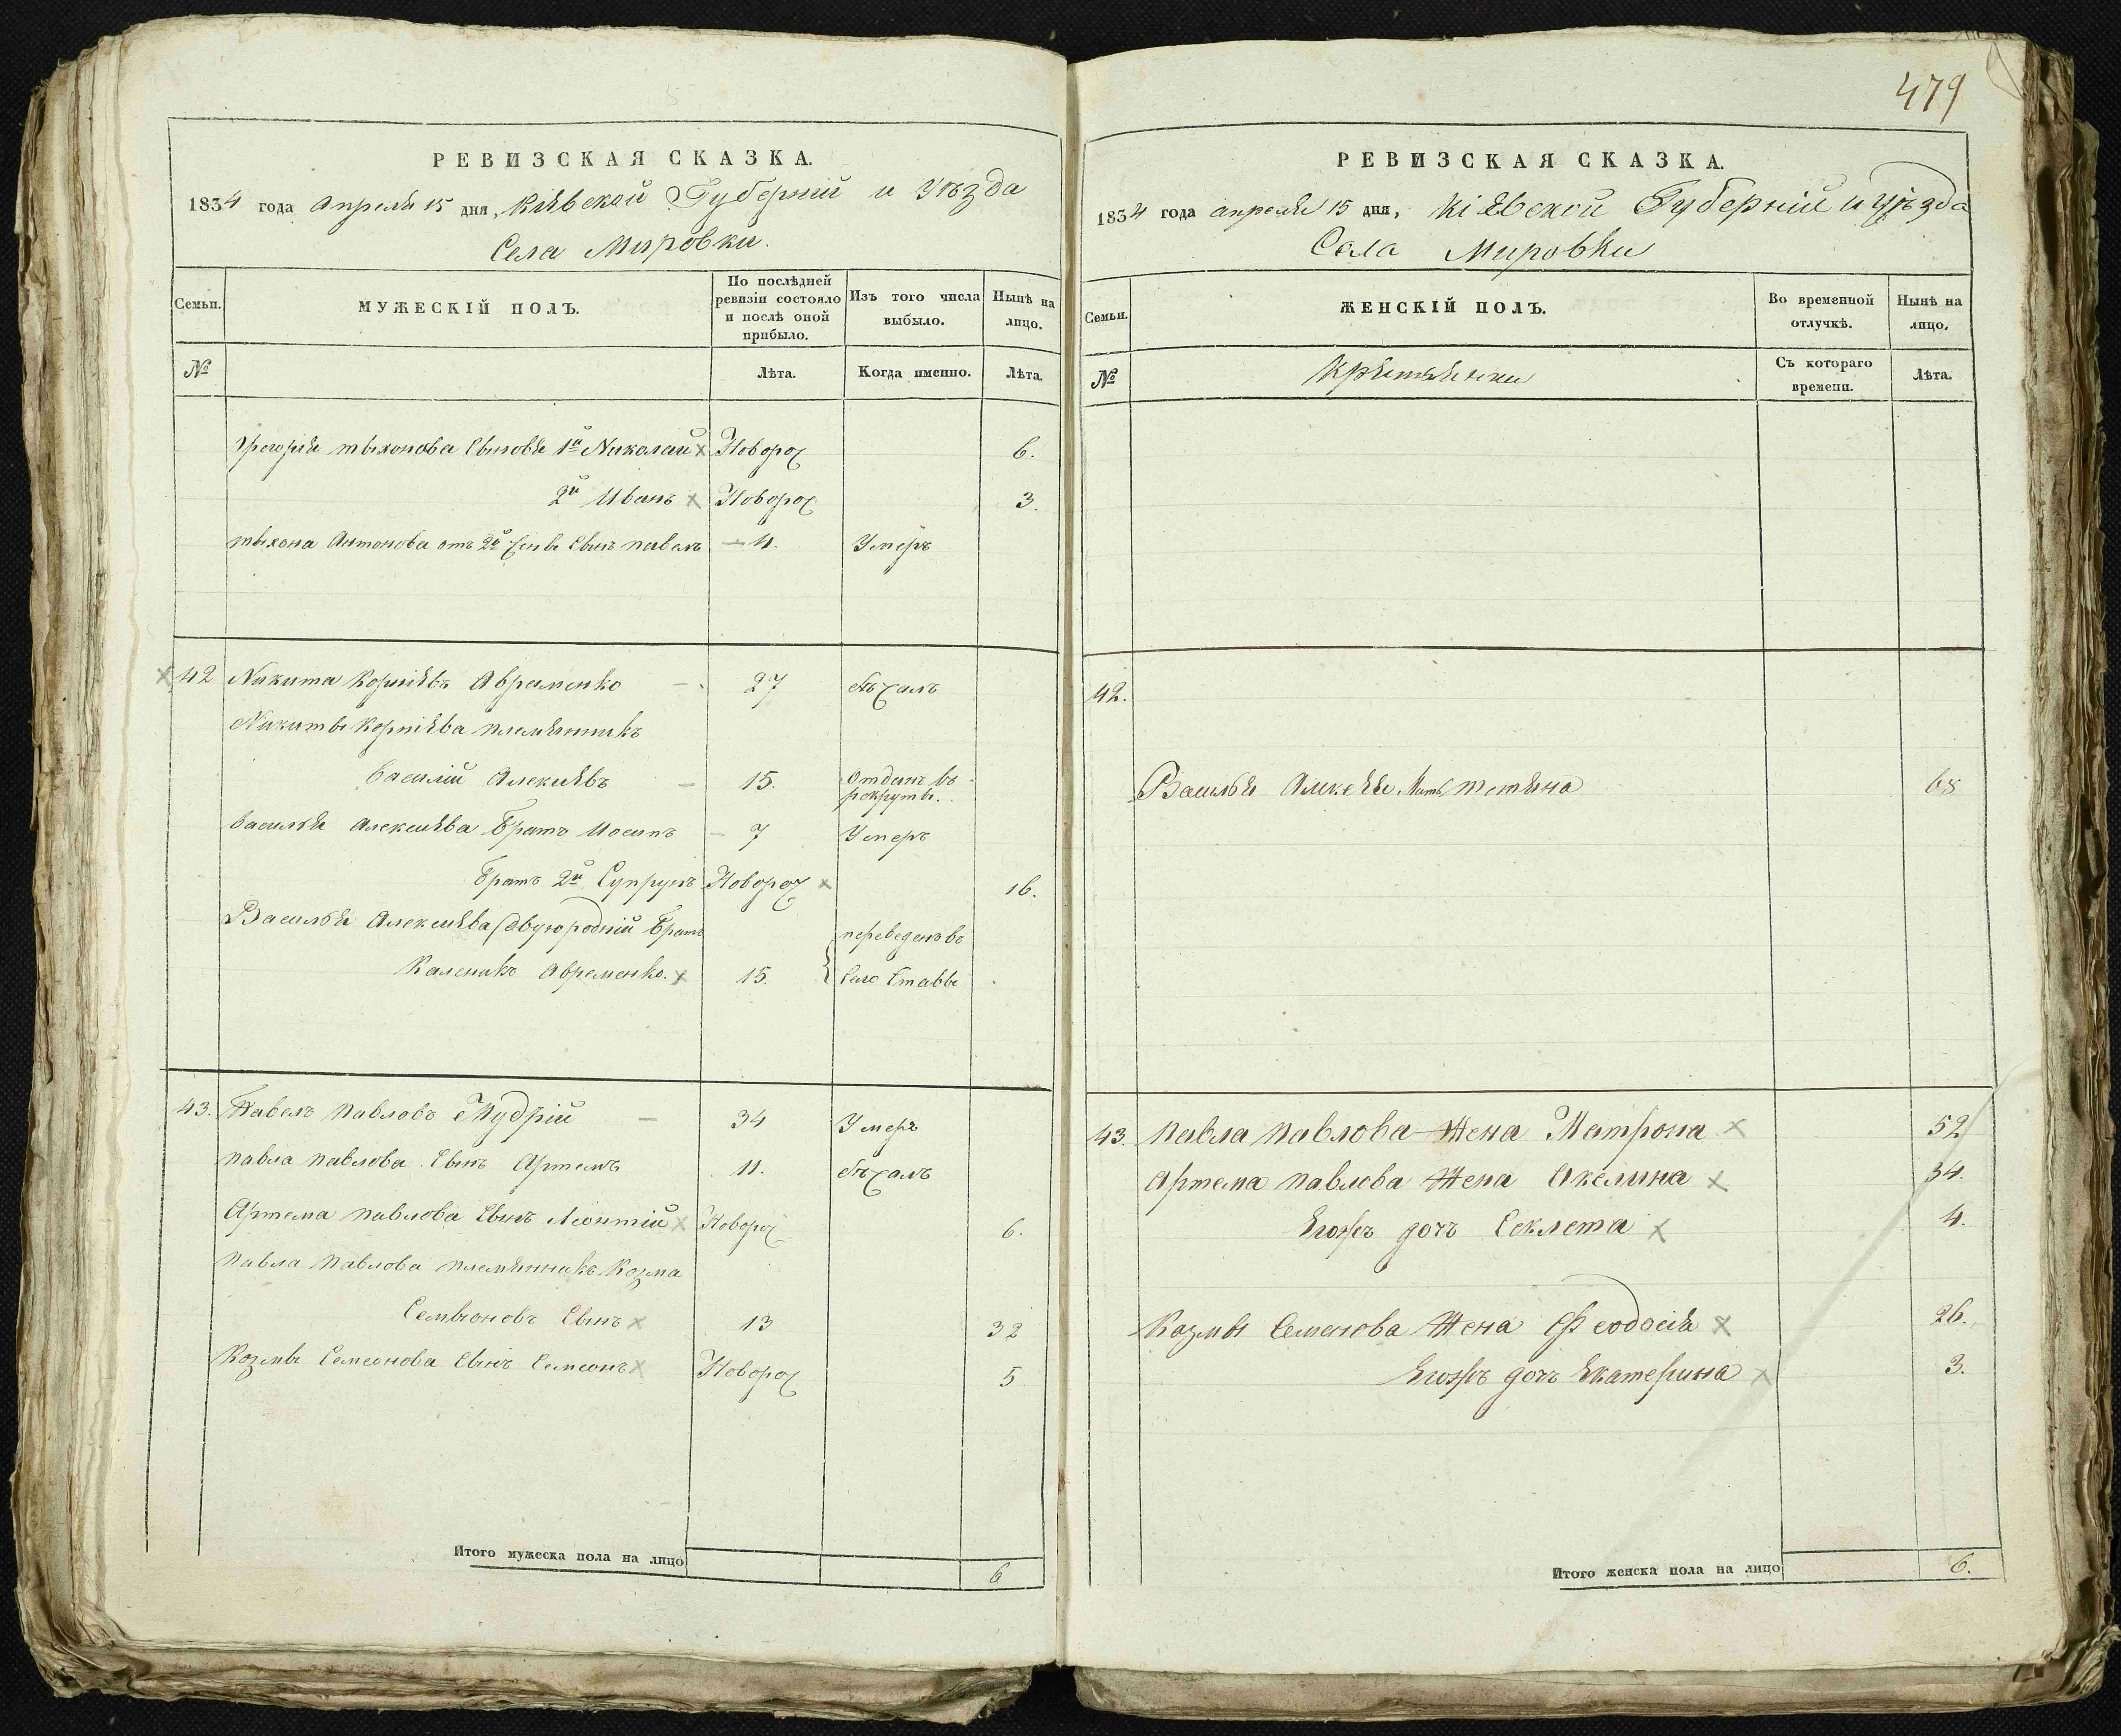 РЕВИЗСКАЯ СКАЗКА.
1834 года апреля 15 дня, Кіевской Губерніи и уезда
Села Мировки.
Семьи.
МУЖЕСКІЙ ПОЛЪ.
По послѣдней ревизіи состояло и послѣ оной прибыло.
Изъ того числа выбыло.
Нынѣ на лицо.
№
Лѣта.
Когда именно.
Лѣта.
Григорія тыхонова Сыновья 1й Николай х Новорож 6.
2й Иванъ х Новорож 3.
тыхона Антонова отъ 2й жены Сынъ павелъ 4. Умеръ
х 42 Никита Корніевъ Авраменко 27 бѣжалъ
Никиты Корніева племянникъ
Василій Алексіевъ 15. отданъ въ
рекруты.
Василья Алексіева Братъ Иосипъ 7 Умеръ
Братъ 2й Супрунъ Новорож х 16.
Василья Алексіева двуюродній Братъ переведенъ въ
Каленикъ Авременко. х 15. Село Ставы
43. Павелъ Павловъ Мудрій 34 Умеръ
павла павлова Сынъ Артемъ 11. бѣжалъ
Артема павлова Сынъ Леонтій х Новорож 6.
павла павлова племянникъ Козма
Семіоновъ Сынъ х 13 32
Козмы Семеонова Сынъ Семеонъ х Новорож 5
Итого мужеска пола на лицо 6
479
РЕВИЗСКАЯ СКАЗКА.
1834 года апреля 15 дня, Кіевской Губерніи и уѣзда
Села Мировки
Семьи.
ЖЕНСКІЙ ПОЛЪ.
Во временной отлучкѣ.
Нынѣ на лицо.
№
Крестьянки
Съ котораго времени.
Лѣта.
42.
Василья Алексея Мать тетяна 68
43. павла павлова Жена Матрона х 52
Артема павлова Жена Акелина х 34.
Егожъ дочь Секлета х 4.
Козмы Семенова Жена Феодосія х 26.
Егожъ дочь Екатерина х 3.
Итого женска пола на лицо 6.